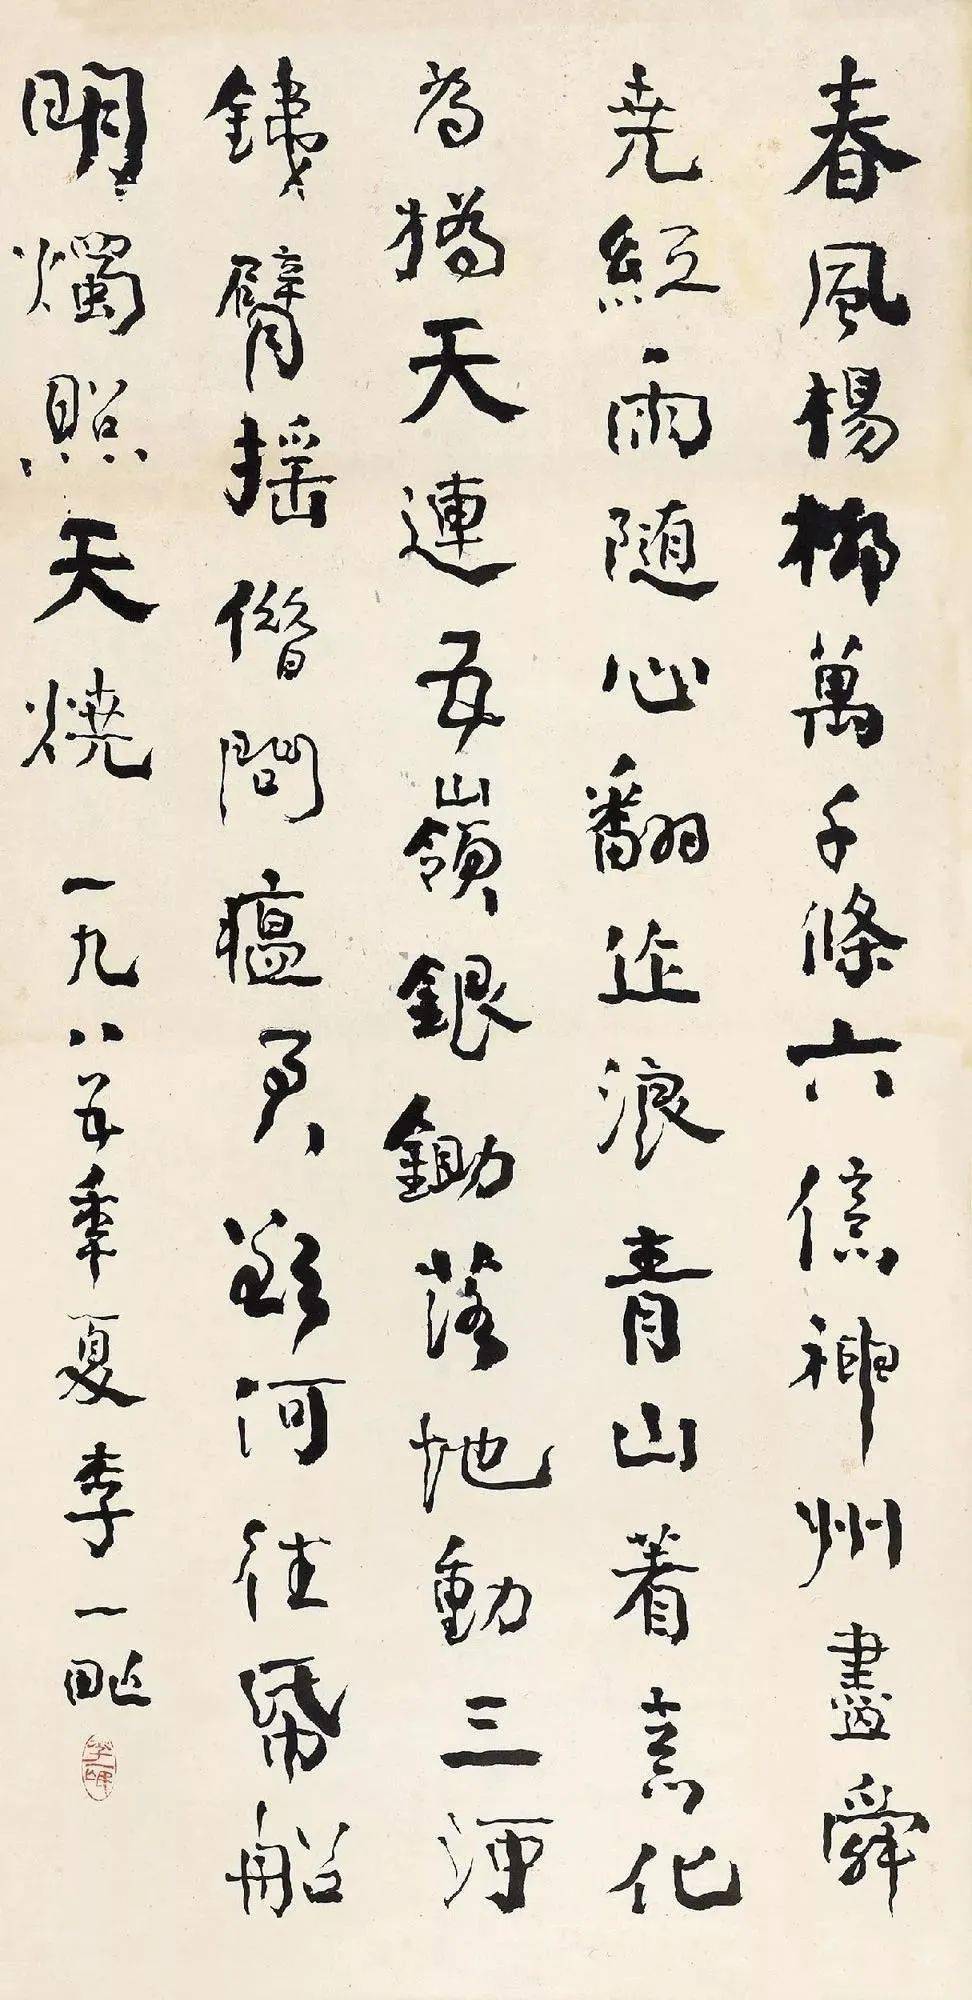 春風楊柳萬千條六億神州盡舜
堯紅雨随心翻作浪青山着意化
為橋天連五嶺銀鋤落地動三河
鐵臂摇借問瘟君欲何往帋船
明燭照天燒 一九八五年夏李一甿